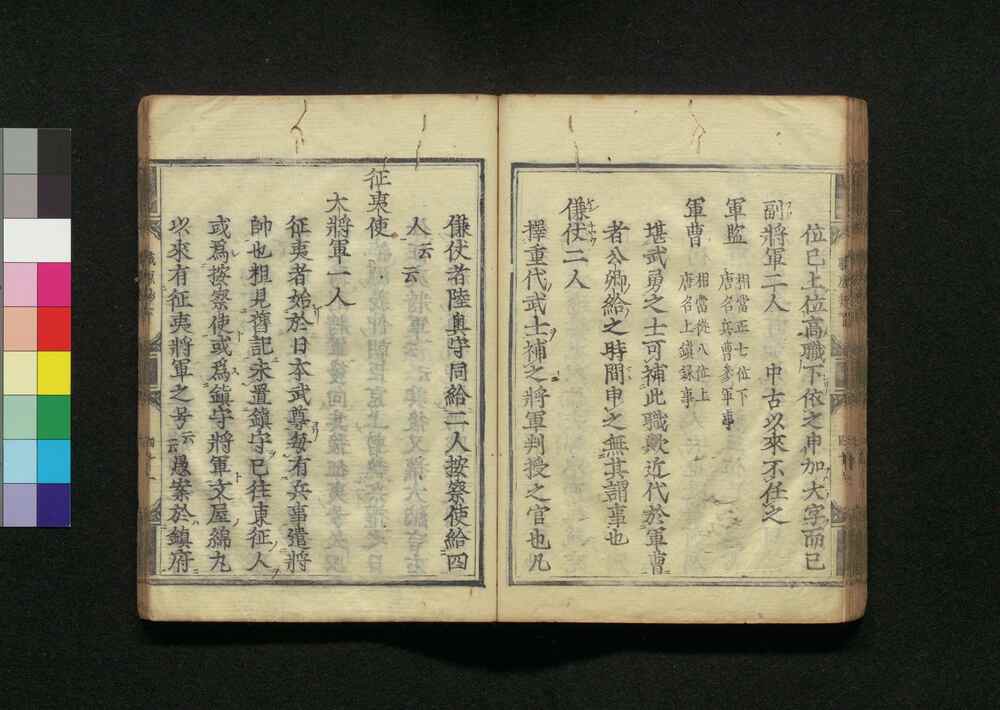 位已上位高職下依之申加大字而已
副將軍二人　中古以來不任之
軍監　相當正七位下
唐名兵曹參軍事
軍曹　相當從八位上
唐名上鎮錄事
堪武勇之士可補此職歟近代於軍曹
者公卿給之時間申之無其謂事也
傔仗二人
擇重代武士補之將軍判授之官也凡
傔仗者陸奧守同給二人按察使給四
人云云
征夷使
大將軍一人
征夷者始於日本武尊每有兵事遣將
帥也粗見舊記未置鎮守已往東征人
或爲按察使或爲鎮守將軍文屋綿丸
以來有征夷將軍之号云云愚案於鎮府